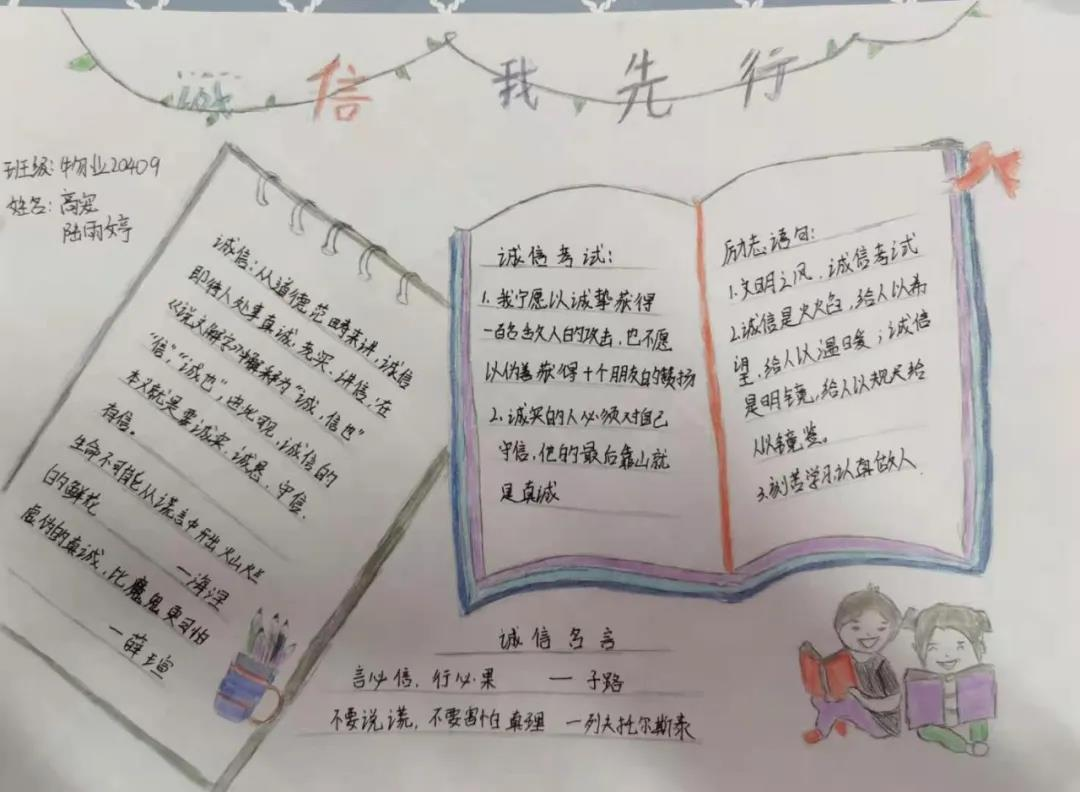 诚信我先行
班级:物业20409
姓名:高宠
陆雨婷
诚信:从道德范畴来讲,诚信
即待人处事真诚,老实、讲信,在
《说文解字》中解释为“诚,信也”
“信”,“诚也”,由此现,诚信的
本义就是要诚实、诚恳、守信、
有信。
生命不可能从谎言中开出灿烂
的鲜花
—海涅
虚伪的真诚,比魔鬼更可怕
—薛瑄
诚信考试:
1.我宁愿以诚挚获得
一百名敌人的攻击,也不愿
以伪善获得十个朋友的赞扬
2.诚实的人必须对自己
守信,他的最后靠山就
是真诚
励志语句:
1.文明之风,诚信考试
2.诚信是火焰,给人以希
望,给人以温暖;诚信
是明镜,给人以规尺给
人以镜鉴。
3.刻苦学习认真做人.
诚信名言
言必信,行必果 — 子路
不要说谎,不要害怕真理 —列夫托尔斯泰